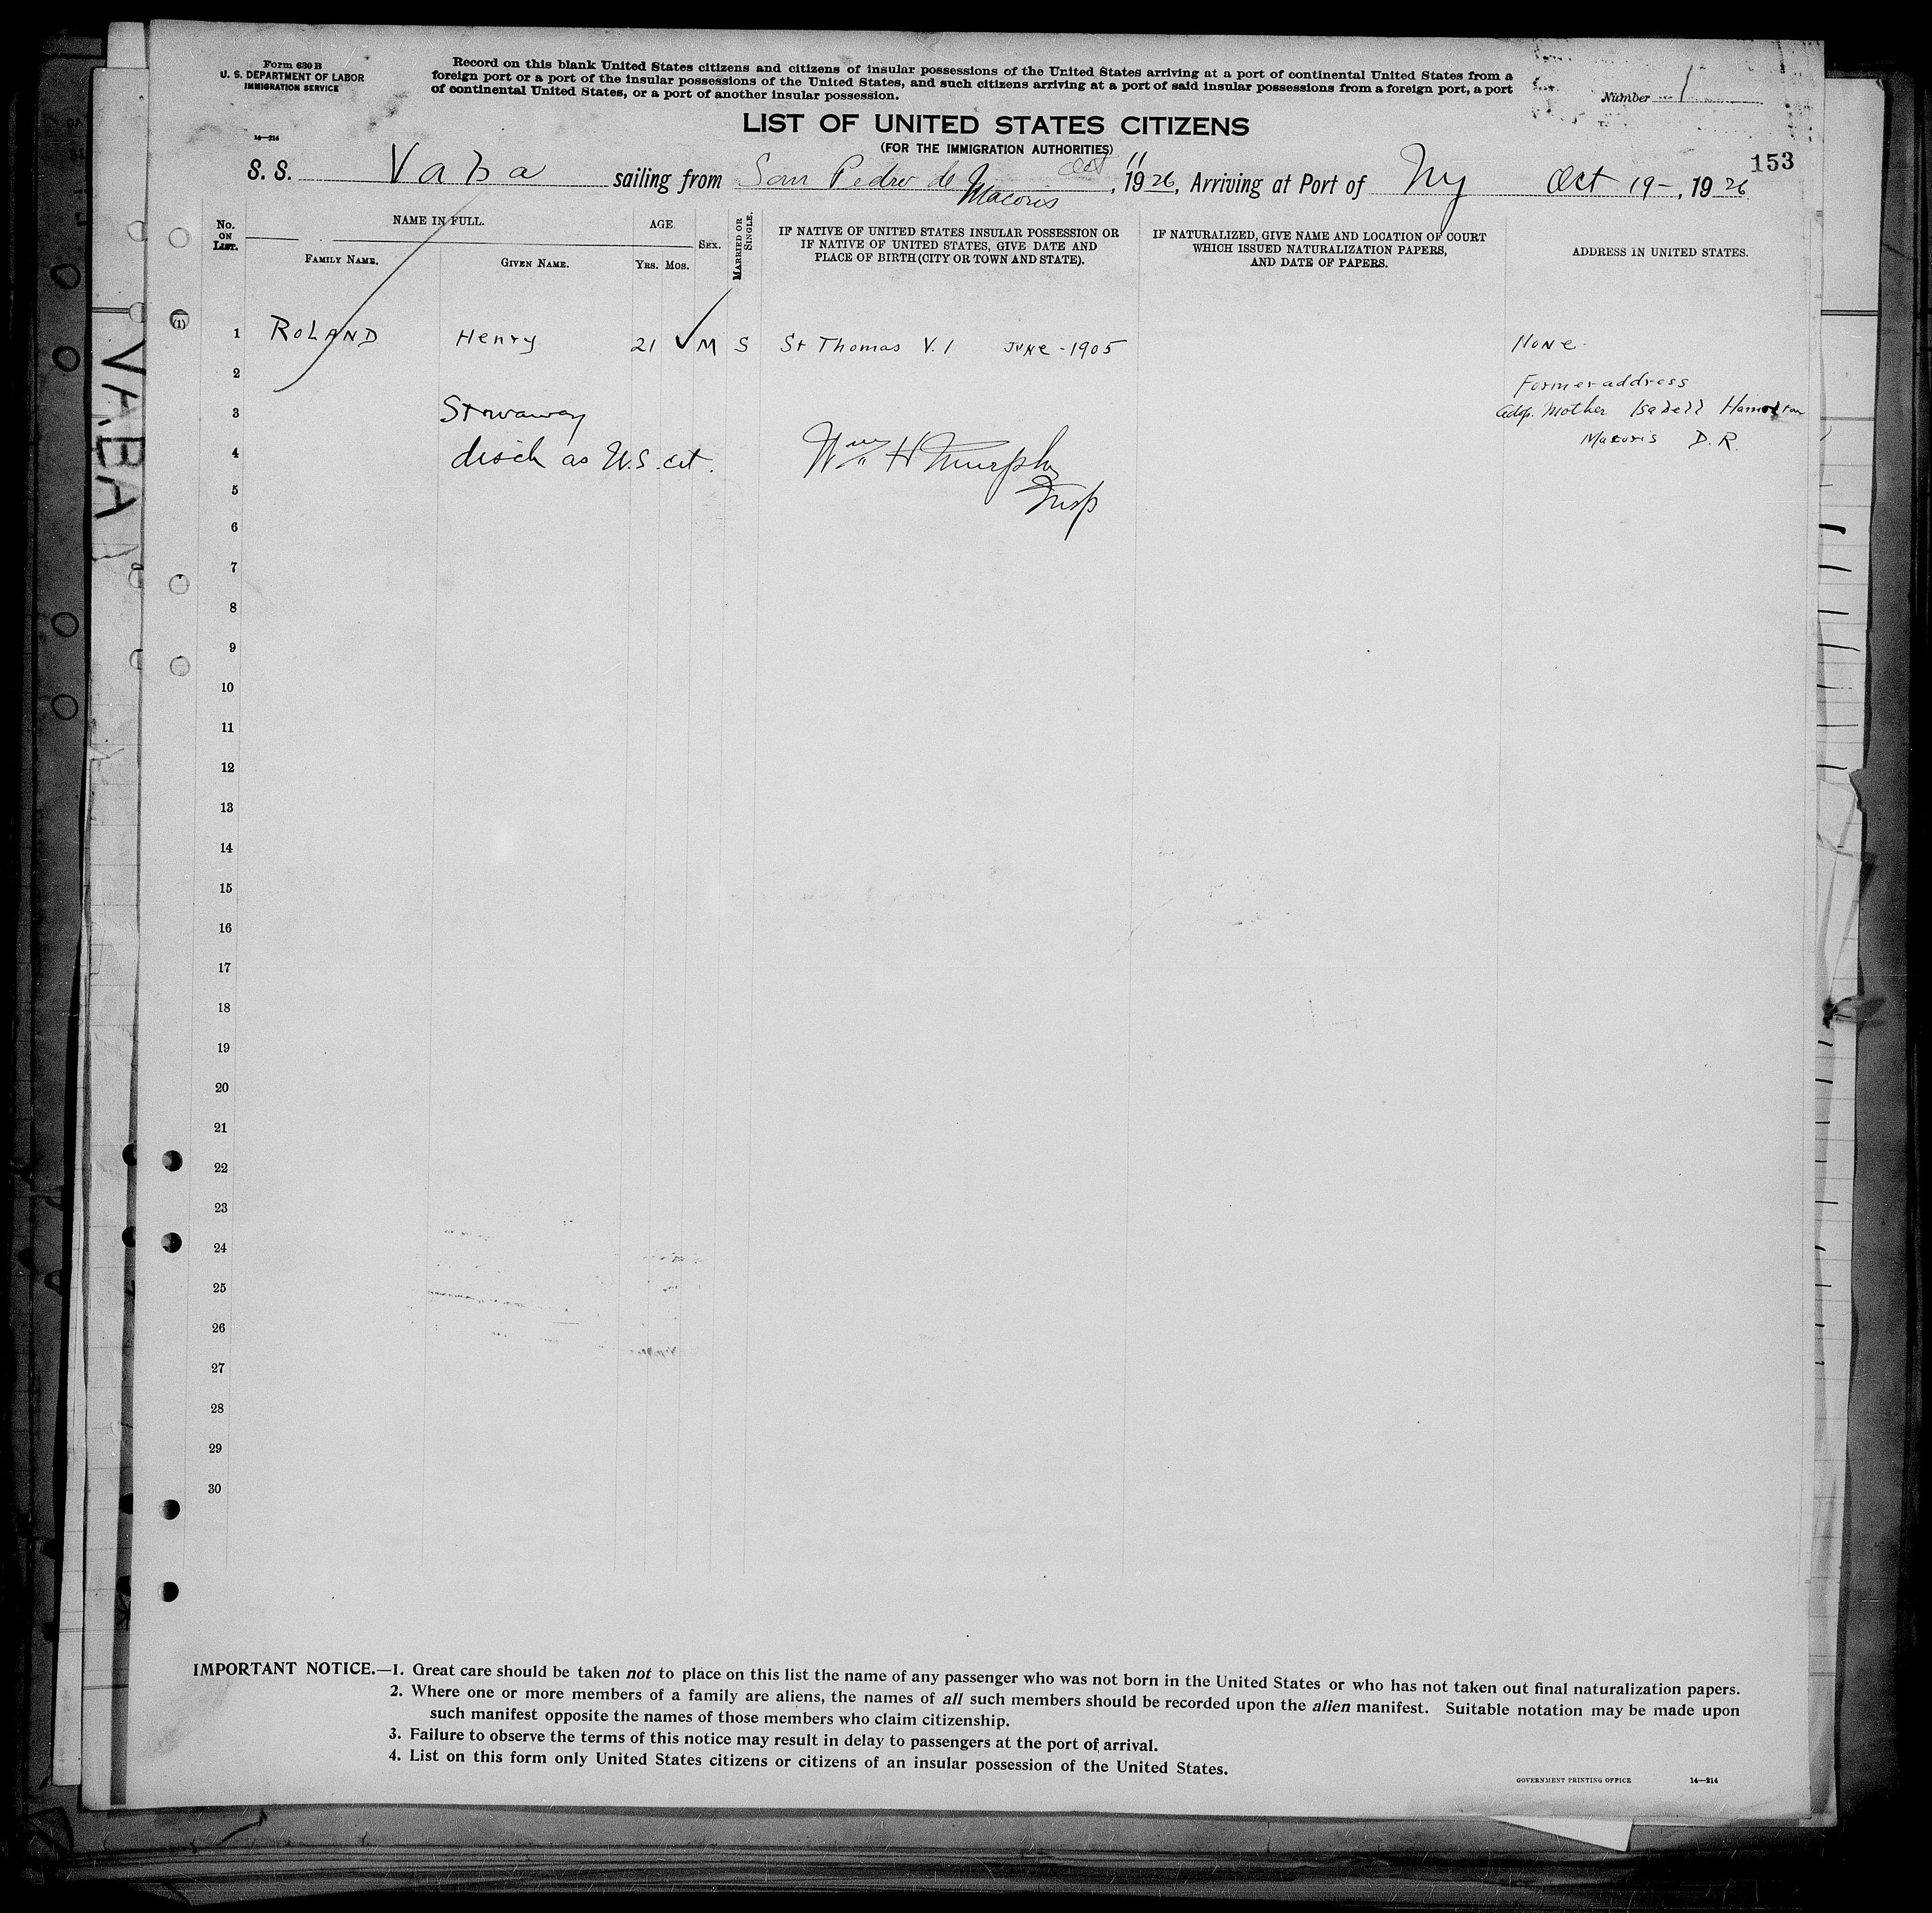 Form 630 B
U. S. DEPARTMENT OF LABOR
IMMIGRATION SERVICE
14—214
Record on this blank United States citizens and citizens of insular possessions of the United States arriving at a port of continental United States from a
foreign port or a port of the insular possessions of the United States, and such citizens arriving at a port of said insular possessions from a foreign port, a port
of continental United States, or a port of another insular possession.
Number 1
LIST OF UNITED STATES CITIZENS
(FOR THE IMMIGRATION AUTHORITIES)
153
S. S. Vaba sailing from San Pedro de Macoris Oct 11, 1926, Arriving at Port of Ny Oct 19—, 1926
No. ON LIST.
NAME IN FULL.
FAMILY NAME.
GIVEN NAME.
AGE
YRS. MOS.
SEX.
MARRIED OR SINGLE.
IF NATIVE OF UNITED STATES INSULAR POSSESSION OR
IF NATIVE OF UNITED STATES, GIVE DATE AND
PLACE OF BIRTH (CITY OR TOWN AND STATE).
IF NATURALIZED, GIVE NAME AND LOCATION OF COURT
WHICH ISSUED NATURALIZATION PAPERS,
AND DATE OF PAPERS.
ADDRESS IN UNITED STATES.
(1)
1 ROLAND Henry 21 ✓ M S St Thomas V. I June - 1905 None
2 Former address
3 Stowaway Mother Isabell Hamilton
4 disch as U.S. cit. Wm H Murphy Macoris D. R.
5 Insp
6
7
8
9
10
11
12
13
14
15
16
17
18
19
20
21
22
23
24
25
26
27
28
29
30
VABA
IMPORTANT NOTICE.—1. Great care should be taken not to place on this list the name of any passenger who was not born in the United States or who has not taken out final naturalization papers.
2. Where one or more members of a family are aliens, the names of all such members should be recorded upon the alien manifest. Suitable notation may be made upon
such manifest opposite the names of those members who claim citizenship.
3. Failure to observe the terms of this notice may result in delay to passengers at the port of arrival.
4. List on this form only United States citizens or citizens of an insular possession of the United States.
GOVERNMENT PRINTING OFFICE 14—214